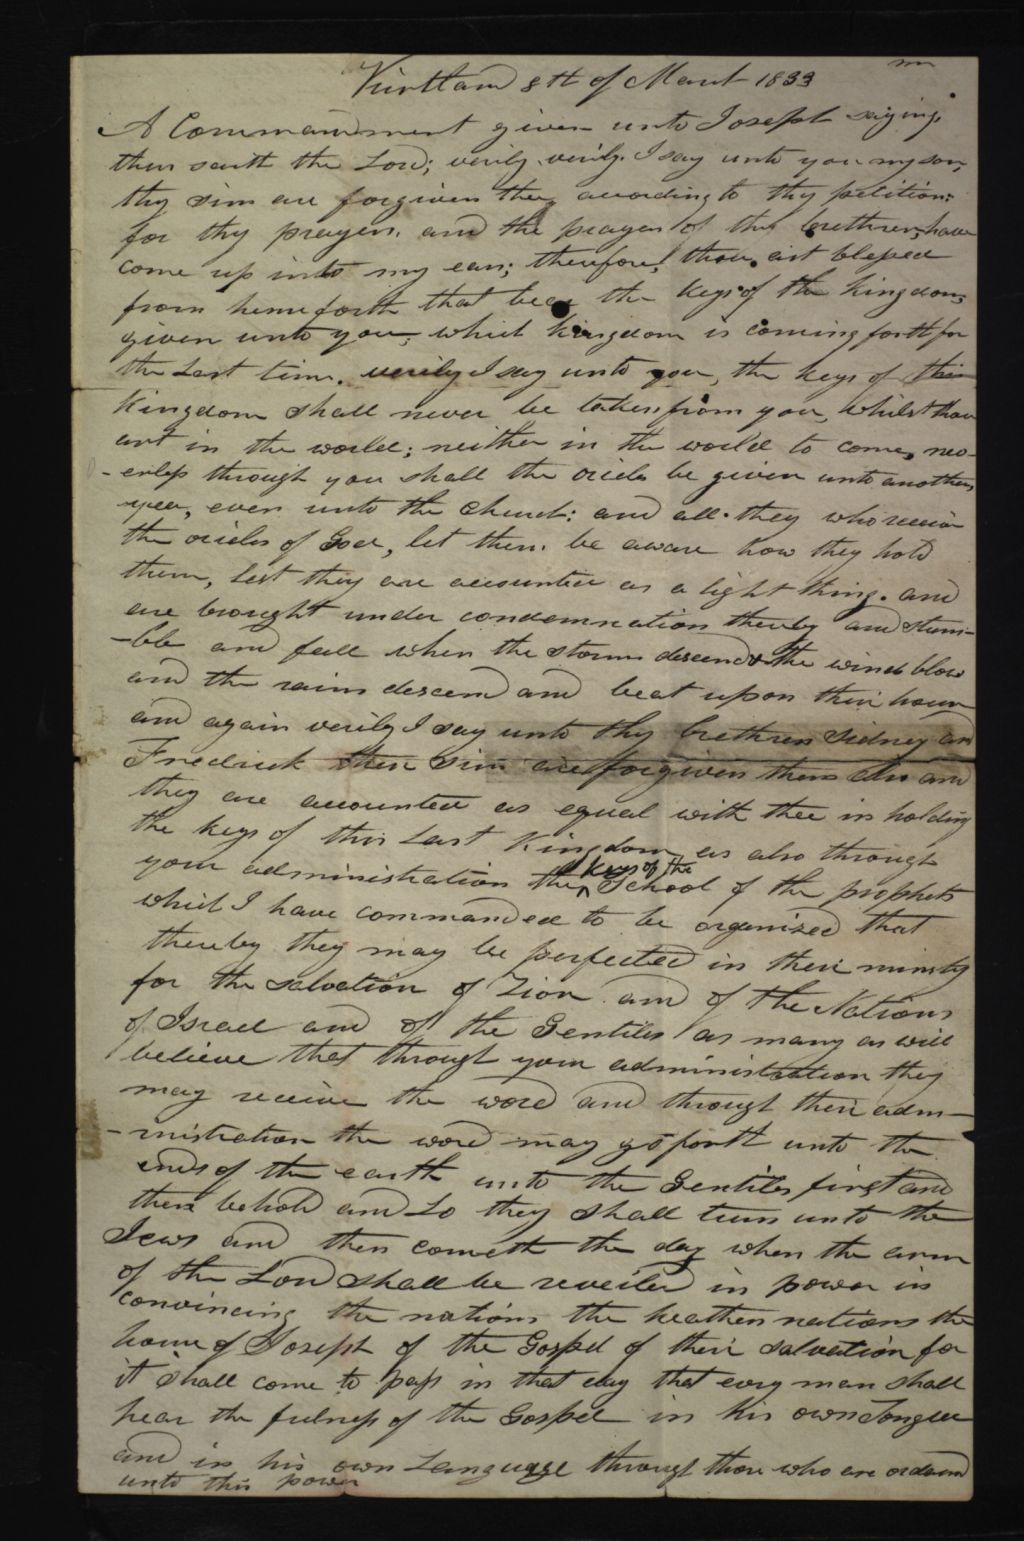 Kirtland 8th of March 1833
A Commandment given unto Joseph saying
thus saith the Lord; verily verily I say unto you my son,
thy sins are forgiven thee according to thy petition;
for thy prayers. and the prayers of thy brethren, have
come up into my ears; therefore, thou art blessed
from henceforth that bear the keys of the kingdom,
given unto you; which kingdom is coming forth for
the Last time. verily I say unto you, the keys of this
Kingdom shall never be taken from you, whilst thou
art in the world; neither in the world to come, nev-
-erless through you shall the oricles be given unto another,
yea, even unto the Church: and all they who receive
the oricles of God, let them be aware how they hold
them, Lest they are accounted as a light thing. and
are brought under condemnation thereby and stum-
-ble and fall when the storms descend & the winds blow
and the rains descend and beat upon their house
and again verily I say unto thy brethren Sidney and
Fredrick their sins are forgiven them also and
they are accounted as equal with thee in holding
the keys of this Last Kingdom as also through
your administration the keys of the School of the prophets
which I have commanded to be organised that
thereby they may be perfected in their ministry
for the salvation of Zion and of the Nations
of Israel and of the Gentiles as many as will
believe that through your administration they
may receive the word and through their adm-
-nistration the word may go forth unto the
ends of the earth unto the Gentiles first and
then behold and Lo they shall turn unto the
Jews and then cometh the day when the arm
of the Lord shall be reveiled in power in
convincing the nations the heathen nations the
house of Joseph of the Gospel of their salvation for
it shall come to pass in that day that every man shall
hear the fulness of the Gospel in his own Tongue
and in his own Language through those who are ordained
unto this power